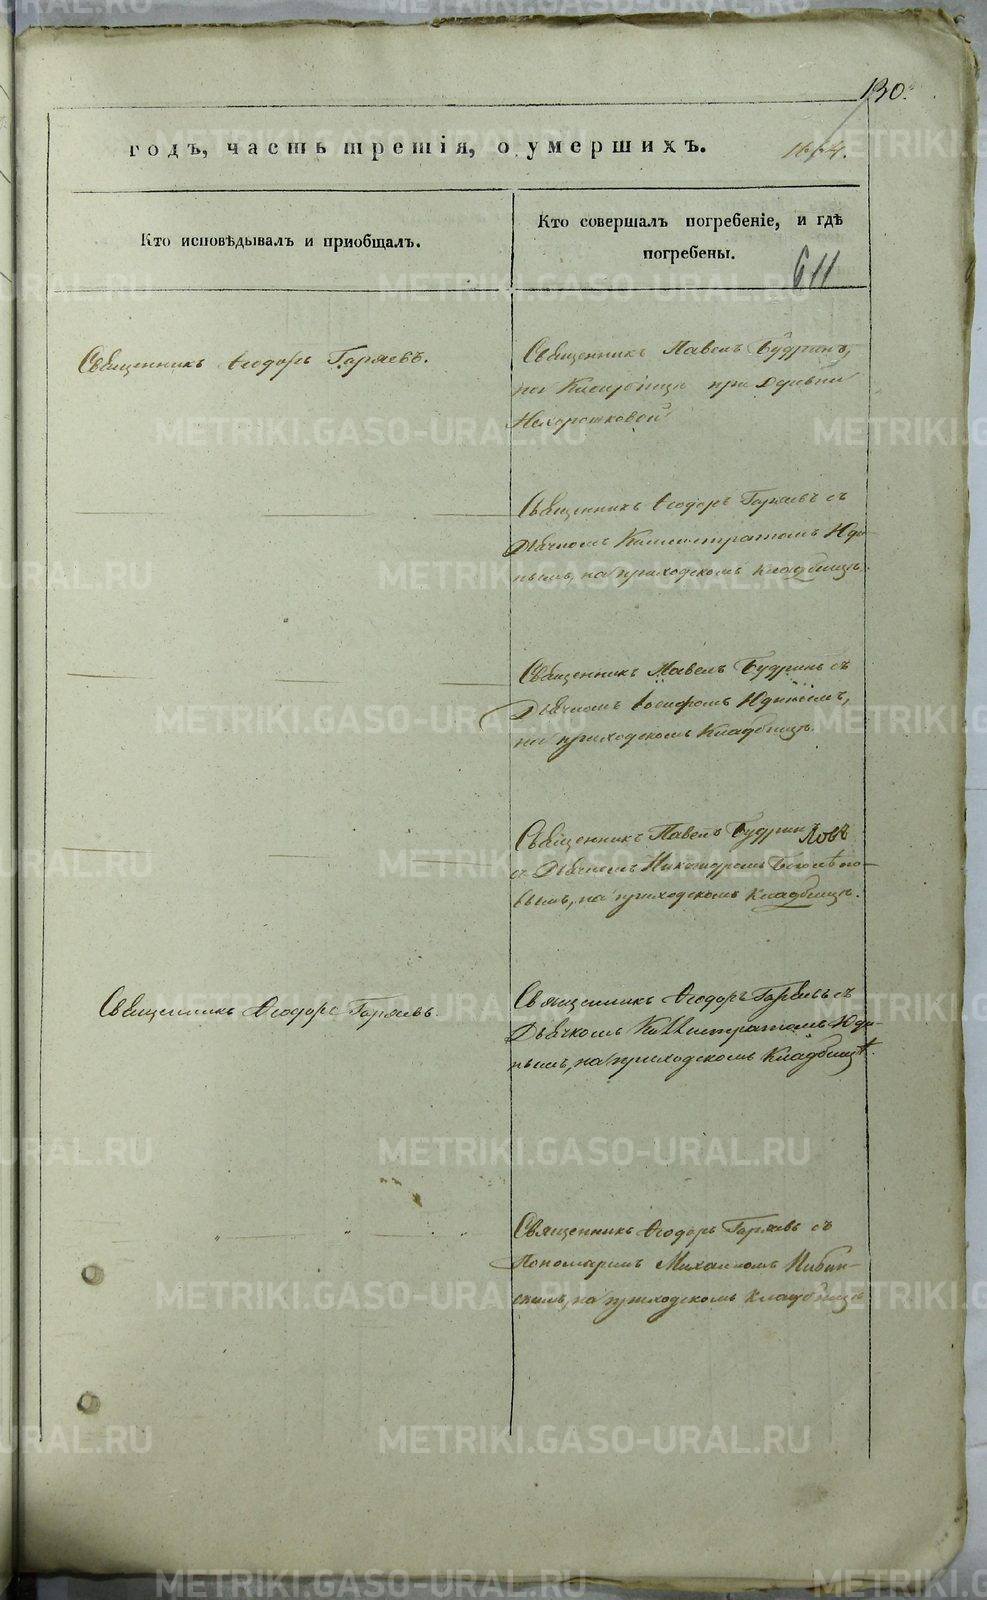 130.
годъ, часть третія, о умершихъ.
Кто исповѣдывалъ и пріобщалъ.
Кто совершалъ погребеніе, и гдѣ
погребены.
611
Священникъ Ѳеодоръ Горяевъ.
Священникъ Павелъ Будринъ,
на Кладбищѣ при Деревни
Нехорошковой
Священникъ Ѳеодоръ Горяевъ съ
Дьячкомъ Каллистратомъ Юди-
нымъ, на приходскомъ Кладбищѣ.
Священникъ Павелъ Будринъ съ
Дьячкомъ Іосифомъ Юдинымъ,
на приходскомъ Кладбищѣ.
Священникъ Павелъ Будрин ловъ
съ Дьячкомъ Никандромъ
вымъ, на приходскомъ Кладбищѣ.
Священникъ Ѳеодоръ Горяевъ.
Священникъ Ѳеодоръ Горяевъ съ
Дьячкомъ Каллистратомъ Юди-
нымъ, на приходскомъ Кладбищѣ.
Священникъ Ѳеодоръ Горяевъ съ
Пономаремъ Михаиломъ
скимъ, на приходскомъ Кладбищѣ
METRIKI.GASO-URAL.RU